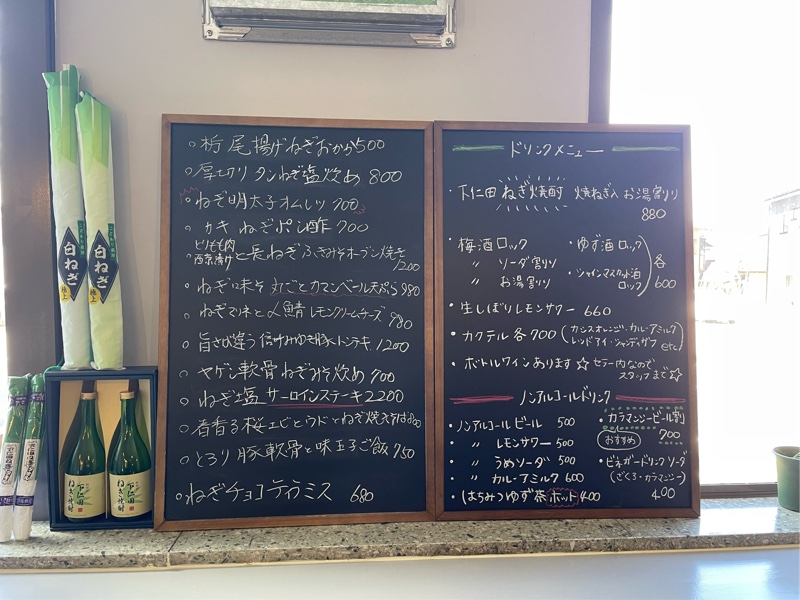 栃尾揚げねぎおから 500
厚切りタンねぎ塩炒め 800
ねぎ明太子オムレツ 700
カキねぎポン酢 700
とりもも肉
西京漬けと長ねぎふきみそオーブン焼き
1200
ねぎ味そ丸ごとカマンベール天ぷら 980
ねぎマネと〆鯖レモンクリームチーズ
980
旨さが違う 豚トンテキ 1200
ヤゲン軟骨ねぎみそ炒め 700
ねぎ塩サーロインステーキ 2200
春香る桜エビとウドとねぎ焼そば 800
とろり豚軟骨と味玉子ご飯 750
ねぎチョコティラミス 680
ドリンクメニュー
下仁田ねぎ焼酎 焼ねぎ入お湯割り
880
梅酒ロック
〃 ソーダ割り
〃 お湯割り
ゆず酒ロック
シャインマスカット酒
ロック
各
600
生しぼりレモンサワー 660
カクテル各700 (カシスオレンジ・カルーアミルク
レッドアイ・シャンディガフ etc)
ボトルワインあります☆ セラー内なので
スタッフまで☆
ノンアルコールドリンク
ノンアルコールビール 500
〃 レモンサワー 500
〃 うめソーダ 500
〃 カルーアミルク 600
はちみつゆず茶ホット 400
カラマンジービール割
おすすめ 700
ビネガードリンクソーダ
(ざくろ・カラマンジー)
400
白ねぎ
極上
白ねぎ
極上
下仁田
ねぎ焼酎
下仁田
ねぎ焼酎